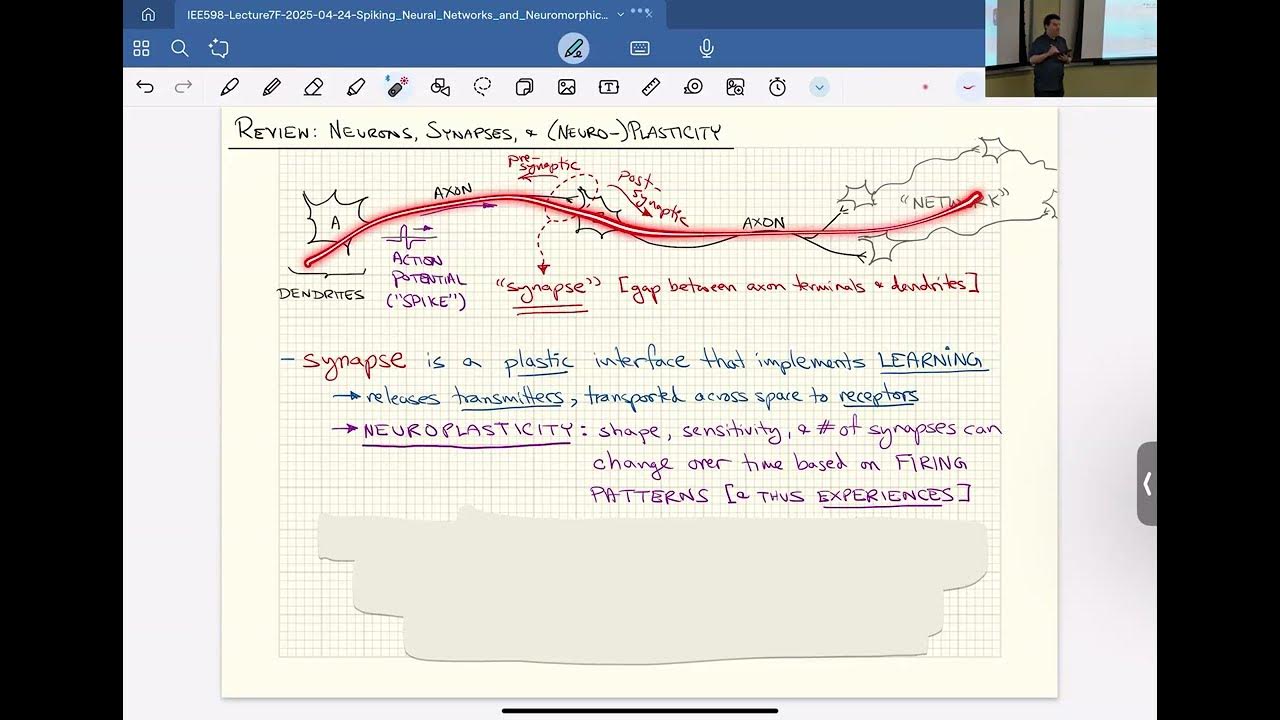 IEE598-Lecture7F-2025-04-24-Spiking_Neural_Networks_and_Neuromorphic...
REVIEW: NEURONS, SYNAPSES, & (NEURO-)PLASTICITY
Pre-
synaptic
Post-
synaptic
AXON
A
AXON
"NETWORK"
ACTION
POTENTIAL
("SPIKE")
DENDRITES
"synapse" [gap between axon terminals & dendrites]
- synapse is a plastic interface that implements LEARNING
→ releases transmitters, transported across space to receptors
→ NEUROPLASTICITY: shape, sensitivity, & # of synapses can
change over time based on FIRING
PATTERNS [& THUS EXPERIENCES]